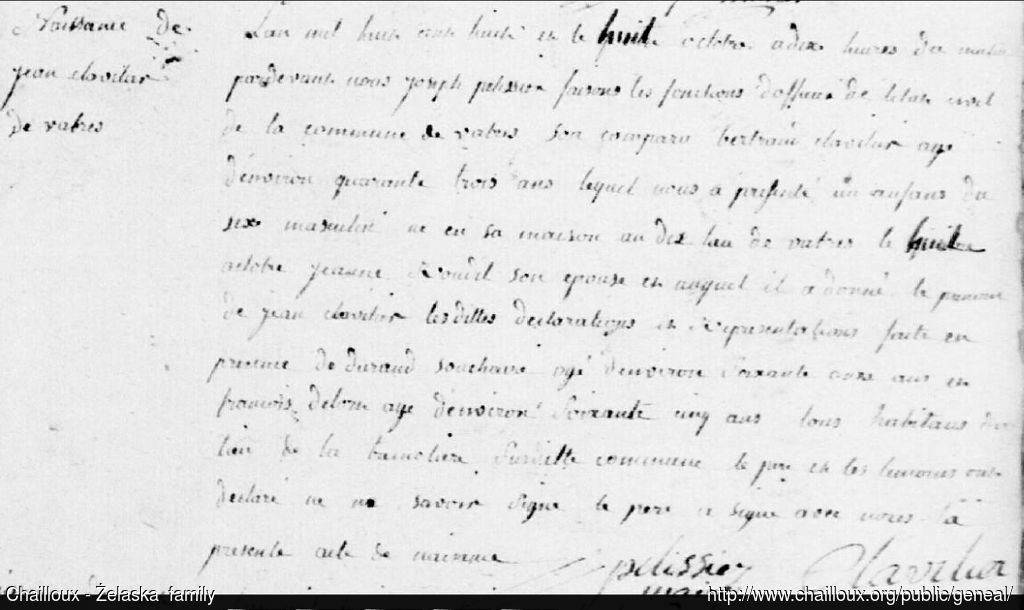 Naissance de
jean clavilier
de vabres
Lan mil huit cent huit et le huit octobre a dix heures du matin
pardevant nous joseph pelissier faisons les fonctions dofficier de letat civil
de la commune de vabres son comparu bertrand clavilier age
denviron quarante trois ans lequel nous a presenté un anfans du
sex masculin ne en sa maison au dit lau de vabres le huit
octobre jeanne Roudil son epouse en auquel il a donné le prenom
de jean clavilier lesdittes declarations et Representations faite en
presence de durand souchaire agé denviron soixante onze ans et
francois delom age denviron soixante cinq ans tous habitans du
lieu de la Susditte commune le pere et les temoins ont
declaré ne savoir signe le pere a signe avec nous la
presente acte de naissance
pelissier clavilier
maire
Chailloux - Żelaska family
http://www.chailloux.org/public/geneal/